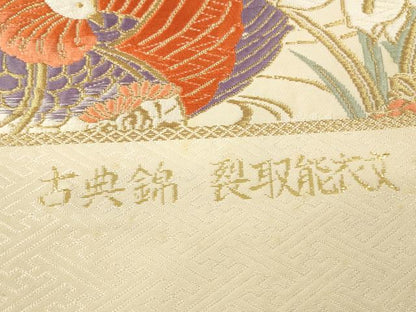 古典錦 裂取能衣文